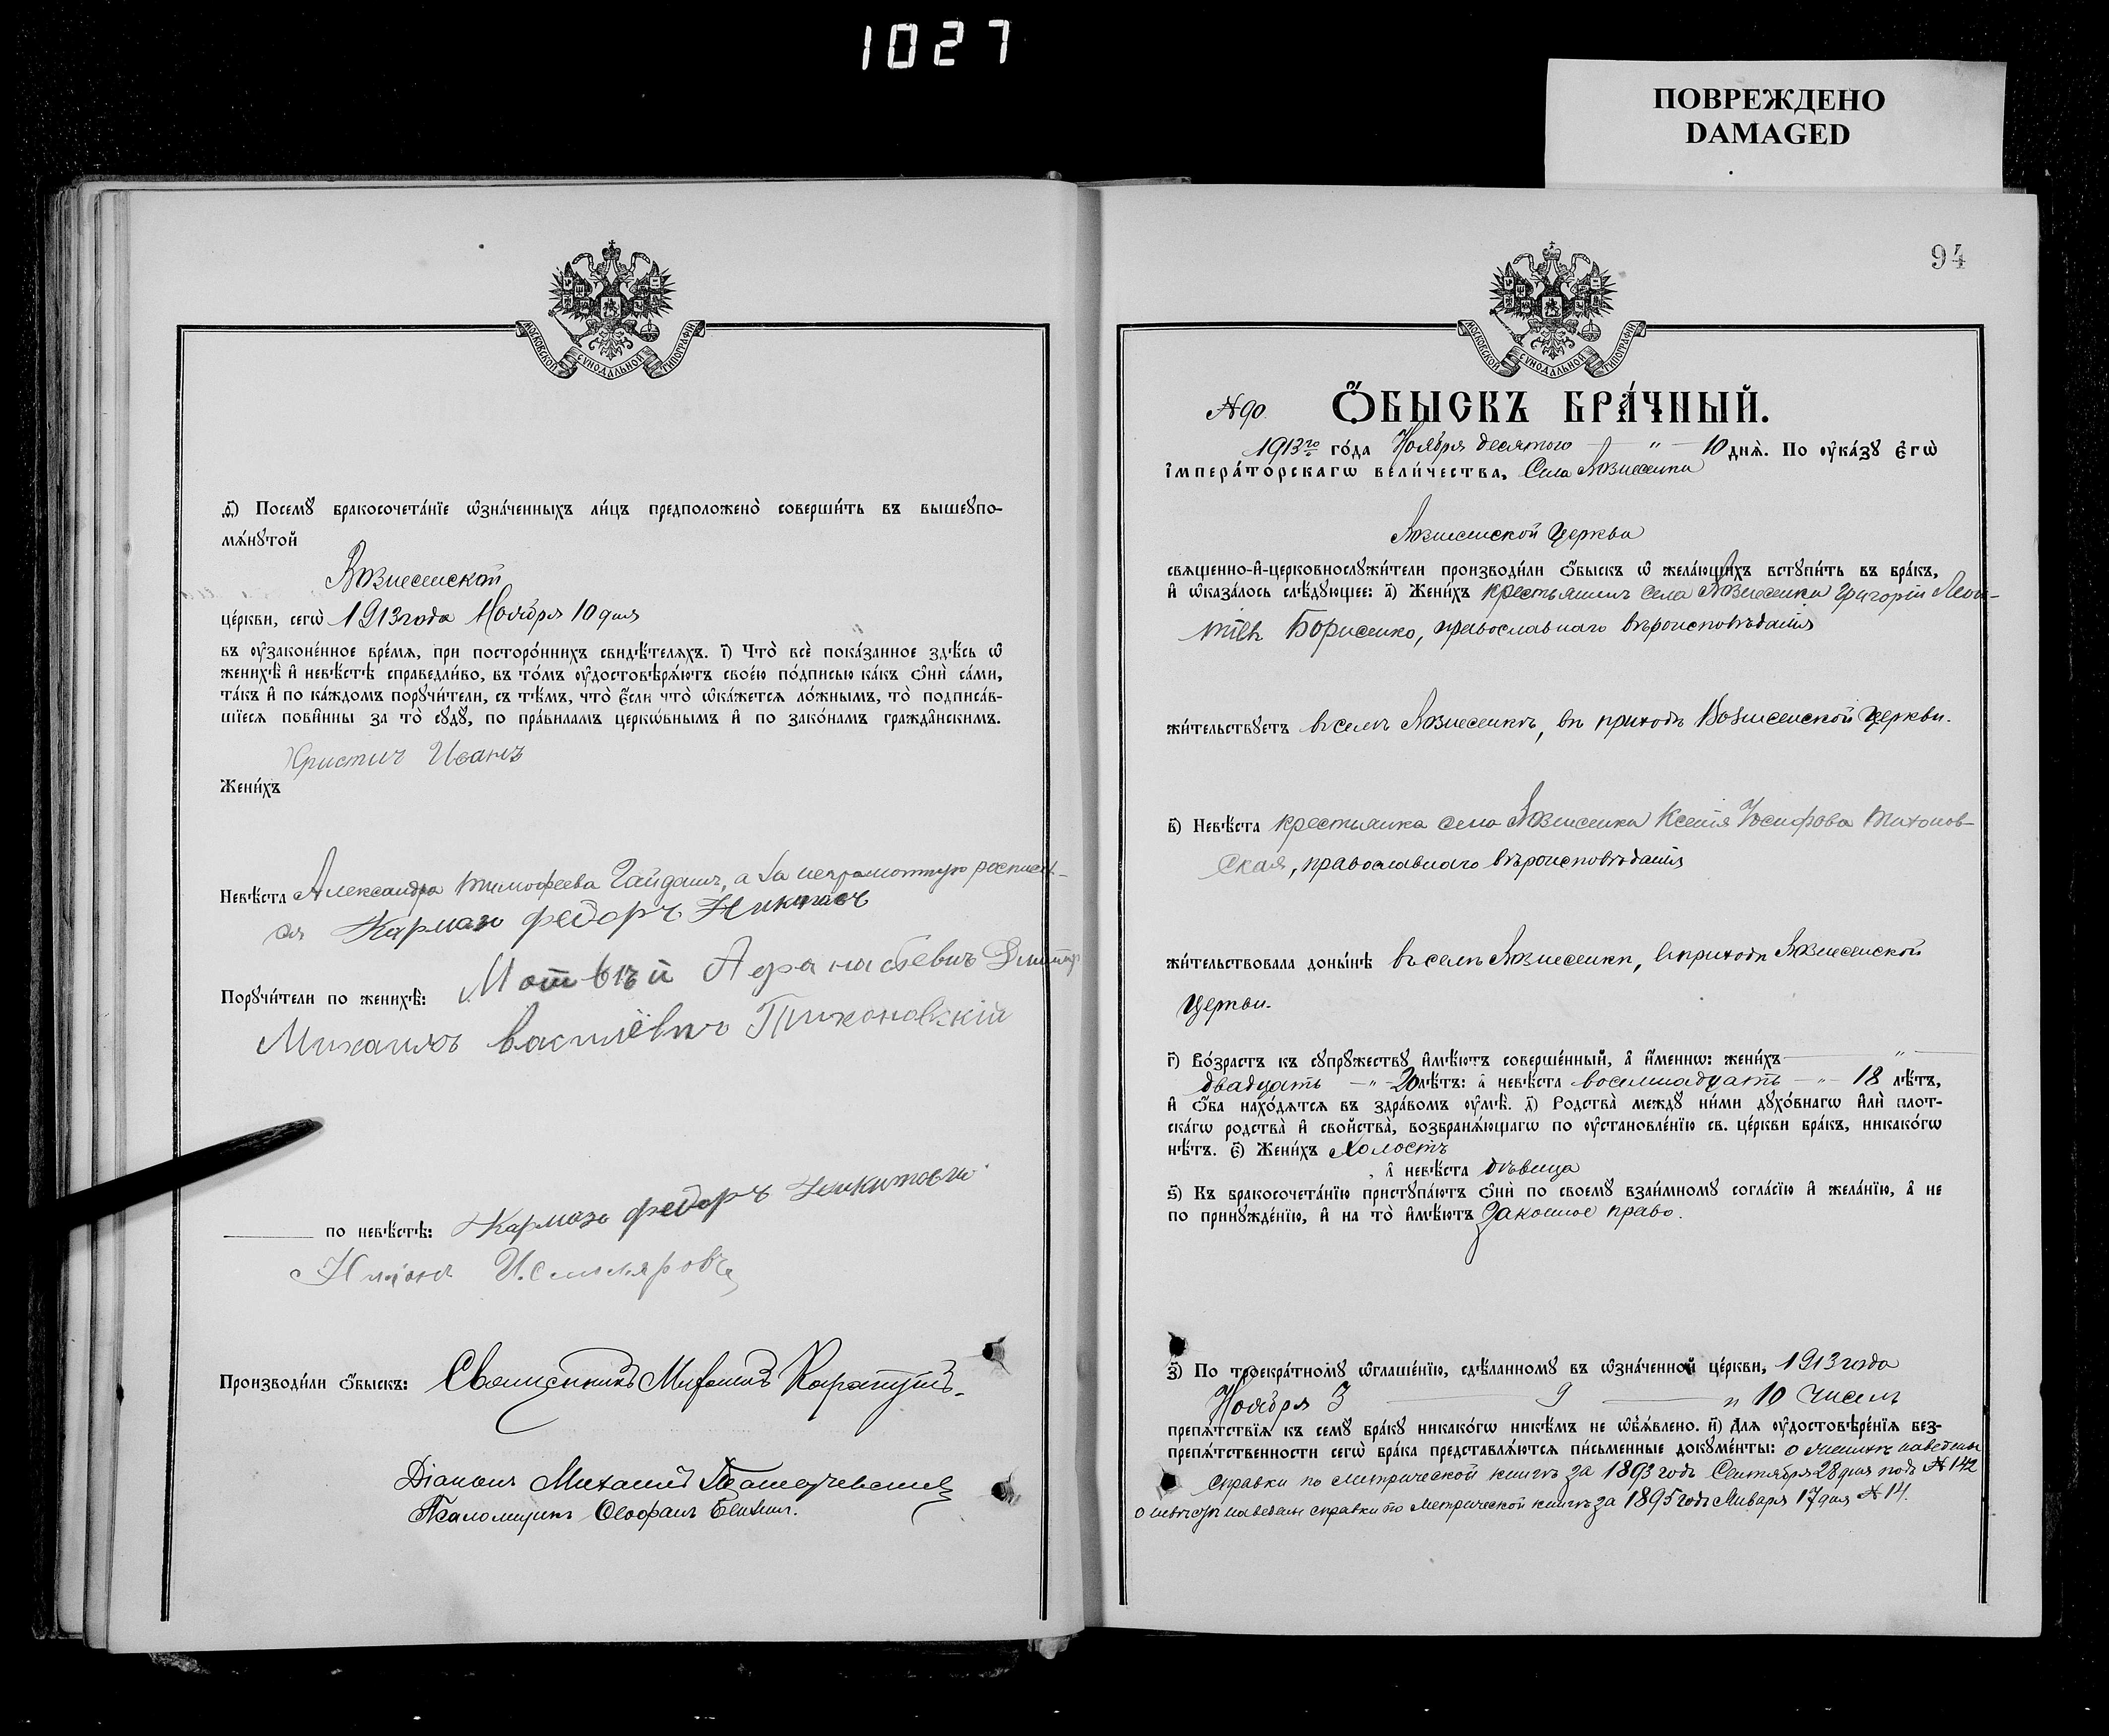 1027
ПОВРЕЖДЕНО
DAMAGED
МОСКОВСКОЙ СѴНОДАЛЬНОЙ ТИПОГРАФІИ
ѳ҃) Посемꙋ бракосочета́нїе ѡ҆зна́ченныхъ ли́цъ предположено̀ соверши́ть въ вышеꙋпо-
мѧ́нꙋтой
Вознесенской
це́ркви, сегѡ̀ 1913 года Ноября 10 дня
въ ᲂу҆законе́нное вре́мѧ, при посторо́ннихъ свидѣ́телѧхъ. і҃) Что̀ всѐ пока́занное здѣ́сь ѡ҆
женихѣ̀ и҆ невѣ́стѣ справедли́во, въ то́мъ ᲂу҆достовѣрѧ́ютъ свое́ю по́дписью ка́къ ѻ҆нѝ са́ми,
та́къ и҆ по ка́ждомъ порꙋчи́тели, съ тѣ́мъ, что̀ є҆́сли что̀ ѡ҆ка́жетсѧ ло́жнымъ, то̀ подписа́в-
шїесѧ пови́нны за то̀ сꙋдꙋ̀, по пра́виламъ церкѡ́внымъ и҆ по зако́намъ гражда̑нскимъ.
Христич Иванъ
Жени́хъ
Невѣ́ста Александра Тимофеева Гайдашъ, а за неграмотную расписал-
ся Кармазь Федоръ Никитовъ
Порꙋчи́тели по женихѣ̀: Матвѣй Афанасьевичъ
Михаилъ Василіевичъ Тихоновскій
по невѣ́стѣ: Кармазь Федоръ Никитовъ
Производи́ли ѻ҆́быскъ: Священникъ
Діаконъ Михаилъ
Псаломщикъ Ѳеофанъ
94
МОСКОВСКОЙ СѴНОДАЛЬНОЙ ТИПОГРАФІИ
№ 90. Ѻ҆́БЫСКЪ БРА́ЧНЫЙ.
1913го го́да Ноября десятого — " — 10 днѧ̀. По ᲂу҆ка́зꙋ є҆гѡ̀
і҆мпера́торскагѡ вели́чества, Села Вознесенки
Вознесенской Церкви
свѧщенно-и҆-церковнослꙋжи́тели производи́ли ѻ҆́быскъ ѡ҆ жела́ющихъ встꙋпи́ть въ бра́къ,
и҆ ѡ҆каза́лось слѣ́дꙋющее: а҃) Жени́хъ крестьянинъ села Вознесенки Григорій Леон-
тіевъ Борисенко, православнаго вѣроисповѣданія
жи́тельствꙋетъ въ селѣ Вознесенкѣ, въ приходѣ Вознесенской Церкви.
в҃) Невѣ́ста крестьянка села Вознесенки Ксенія Іосифова Тихонов-
ская, православнаго вѣроисповѣданія
жи́тельствовала доны́нѣ въ селѣ Вознесенкѣ, въ приходѣ Вознесенской
Церкви.
г҃) Во́зрастъ къ сꙋпрꙋ́жествꙋ и҆мѣ́ютъ соверше́нный, а҆ и҆́меннѡ: жени́хъ — " —
двадцать — " — 20 лѣ́тъ: а҆ невѣ́ста восемнадцать — " — 18 лѣ́тъ,
и҆ ѻ҆́ба нахо́дѧтсѧ въ здра́вомъ ᲂу҆мѣ̀. д҃) Родства̀ междꙋ ни́ми дꙋхо́внагѡ и҆лѝ плот-
ска́гѡ родства̀ и҆ сво́йства, возбранѧ́ющагѡ по ᲂу҆становле́нїю св. це́ркви бра́къ, никако́гѡ
нѣ́тъ. є҃) Жени́хъ холостъ
, а҆ невѣ́ста дѣвица
ѕ҃) Къ бракосочета́нїю пристꙋпа́ютъ ѻ҆нѝ по своемꙋ̀ взаи́мномꙋ согла́сїю и҆ жела́нїю, а҆ не
по принꙋжде́нїю, и҆ на то̀ и҆мѣ́ютъ законное право.
з҃) По троекра́тномꙋ ѡ҆глаше́нїю, сдѣ́ланномꙋ въ ѡ҆зна́ченной це́ркви, 1913 года
Ноября 3 — 9 — и 10 чиселъ
препѧ́тствїѧ къ семꙋ̀ бра́кꙋ никако́гѡ никѣ́мъ не ѡ҆бъѧ́влено. и҃) Длѧ̀ ᲂу҆достовѣре́нїѧ без-
препѧ́тственности сегѡ̀ бра́ка представлѧ́ютсѧ пи́сьменные докꙋме́нты: о женихѣ наведены
справки по метрической книгѣ за 1893 годъ Сентября 28 дня подъ № 142
о невѣстѣ наведены справки по Метрической книгѣ за 1895 годъ Января 17 дня № 14.